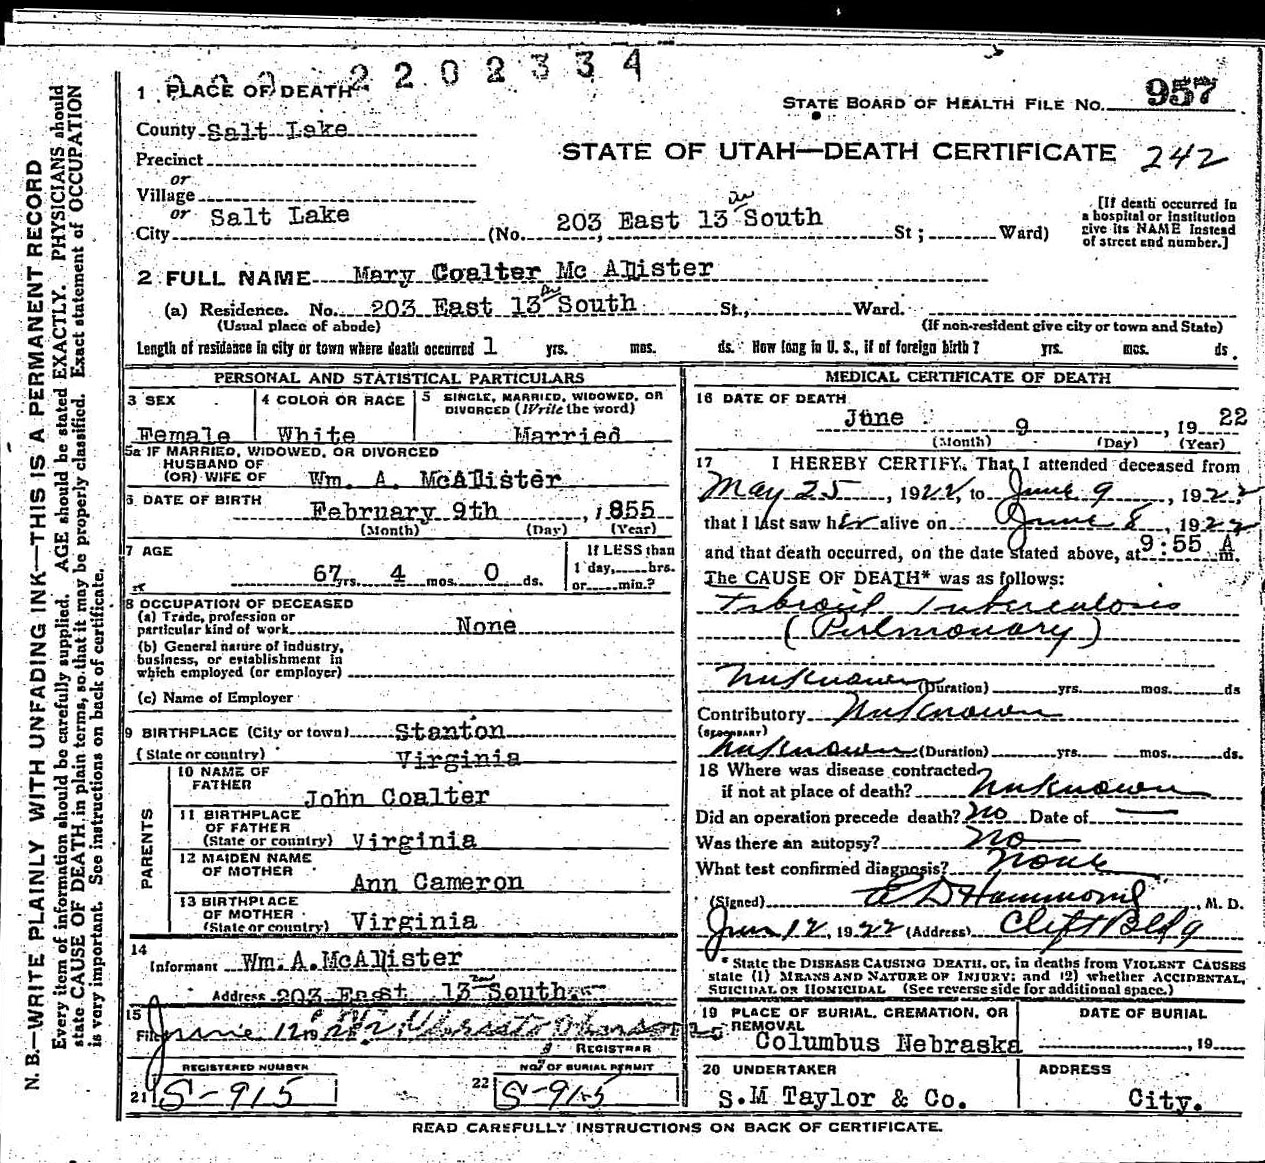 0002202334
1 PLACE OF DEATH
STATE BOARD OF HEALTH FILE NO. 957
County Salt Lake
STATE OF UTAH—DEATH CERTIFICATE 242
Precinct
or
Village
or
City Salt Lake (No. 203 East 13 South St; Ward)
[If death occurred in
a hospital or institution
give its NAME instead
of street end number.]
2 FULL NAME Mary Coalter Mc Allister
(a) Residence. No. 203 East 13 South St., Ward.
(Usual place of abode) (If non-resident give city or town and State)
Length of residence in city or town where death occurred 1 yrs. mos. ds. How long in U. S., if of foreign birth? yrs. mos. ds.
PERSONAL AND STATISTICAL PARTICULARS
3 SEX
Female
4 COLOR OR RACE
White
5 SINGLE, MARRIED, WIDOWED, OR
DIVORCED (Write the word)
Married
5a IF MARRIED, WIDOWED, OR DIVORCED
HUSBAND OF
(OR) WIFE OF Wm. A. McAllister
6 DATE OF BIRTH
February 9th, 1855
(Month) (Day) (Year)
7 AGE
67 yrs. 4 mos. 0 ds.
If LESS than
1 day, hrs.
or min.?
8 OCCUPATION OF DECEASED
(a) Trade, profession or
particular kind of work None
(b) General nature of industry,
business, or establishment in
which employed (or employer)
(c) Name of Employer
9 BIRTHPLACE (City or town) Stanton
(State or country) Virginia
PARENTS
10 NAME OF
FATHER
John Coalter
11 BIRTHPLACE
OF FATHER
(State or country) Virginia
12 MAIDEN NAME
OF MOTHER
Ann Cameron
13 BIRTHPLACE
OF MOTHER
(State or country) Virginia
14
Informant Wm. A. McAllister
Address 203 East 13 South.
15
Filed June 12
REGISTRAR
REGISTERED NUMBER
21 S-915
NO. OF BURIAL PERMIT
22 S-915
MEDICAL CERTIFICATE OF DEATH
16 DATE OF DEATH
June 9, 1922
(Month) (Day) (Year)
17 I HEREBY CERTIFY, That I attended deceased from
May 25, 1922, to June 9, 1922
that I last saw her alive on June 8, 1922
and that death occurred, on the date stated above, at 9:55 A m.
The CAUSE OF DEATH* was as follows:
Fibroid Tuberculosis
(Pulmonary)
Unknown (Duration) yrs. mos. ds
Contributory Unknown
(SECONDARY)
Unknown (Duration) yrs. mos. ds.
18 Where was disease contracted
if not at place of death? Unknown
Did an operation precede death? No Date of —
Was there an autopsy? No
What test confirmed diagnosis? None
(Signed) E D Hammond, M. D.
Jun 12, 1922 (Address) Clift Bldg
* State the DISEASE CAUSING DEATH, or, in deaths from VIOLENT CAUSES
state (1) MEANS AND NATURE OF INJURY; and (2) whether ACCIDENTAL,
SUICIDAL OR HOMICIDAL (See reverse side for additional space.)
19 PLACE OF BURIAL, CREMATION, OR
REMOVAL
Columbus Nebraska
DATE OF BURIAL
, 19
20 UNDERTAKER
S.M Taylor & Co.
ADDRESS
City.
READ CAREFULLY INSTRUCTIONS ON BACK OF CERTIFICATE.
N. B.—WRITE PLAINLY WITH UNFADING INK—THIS IS A PERMANENT RECORD
Every item of information should be carefully supplied. AGE should be stated EXACTLY. PHYSICIANS should
state CAUSE OF DEATH in plain terms, so that it may be properly classified. Exact statement of OCCUPATION
is very important. See instructions on back of certificate.